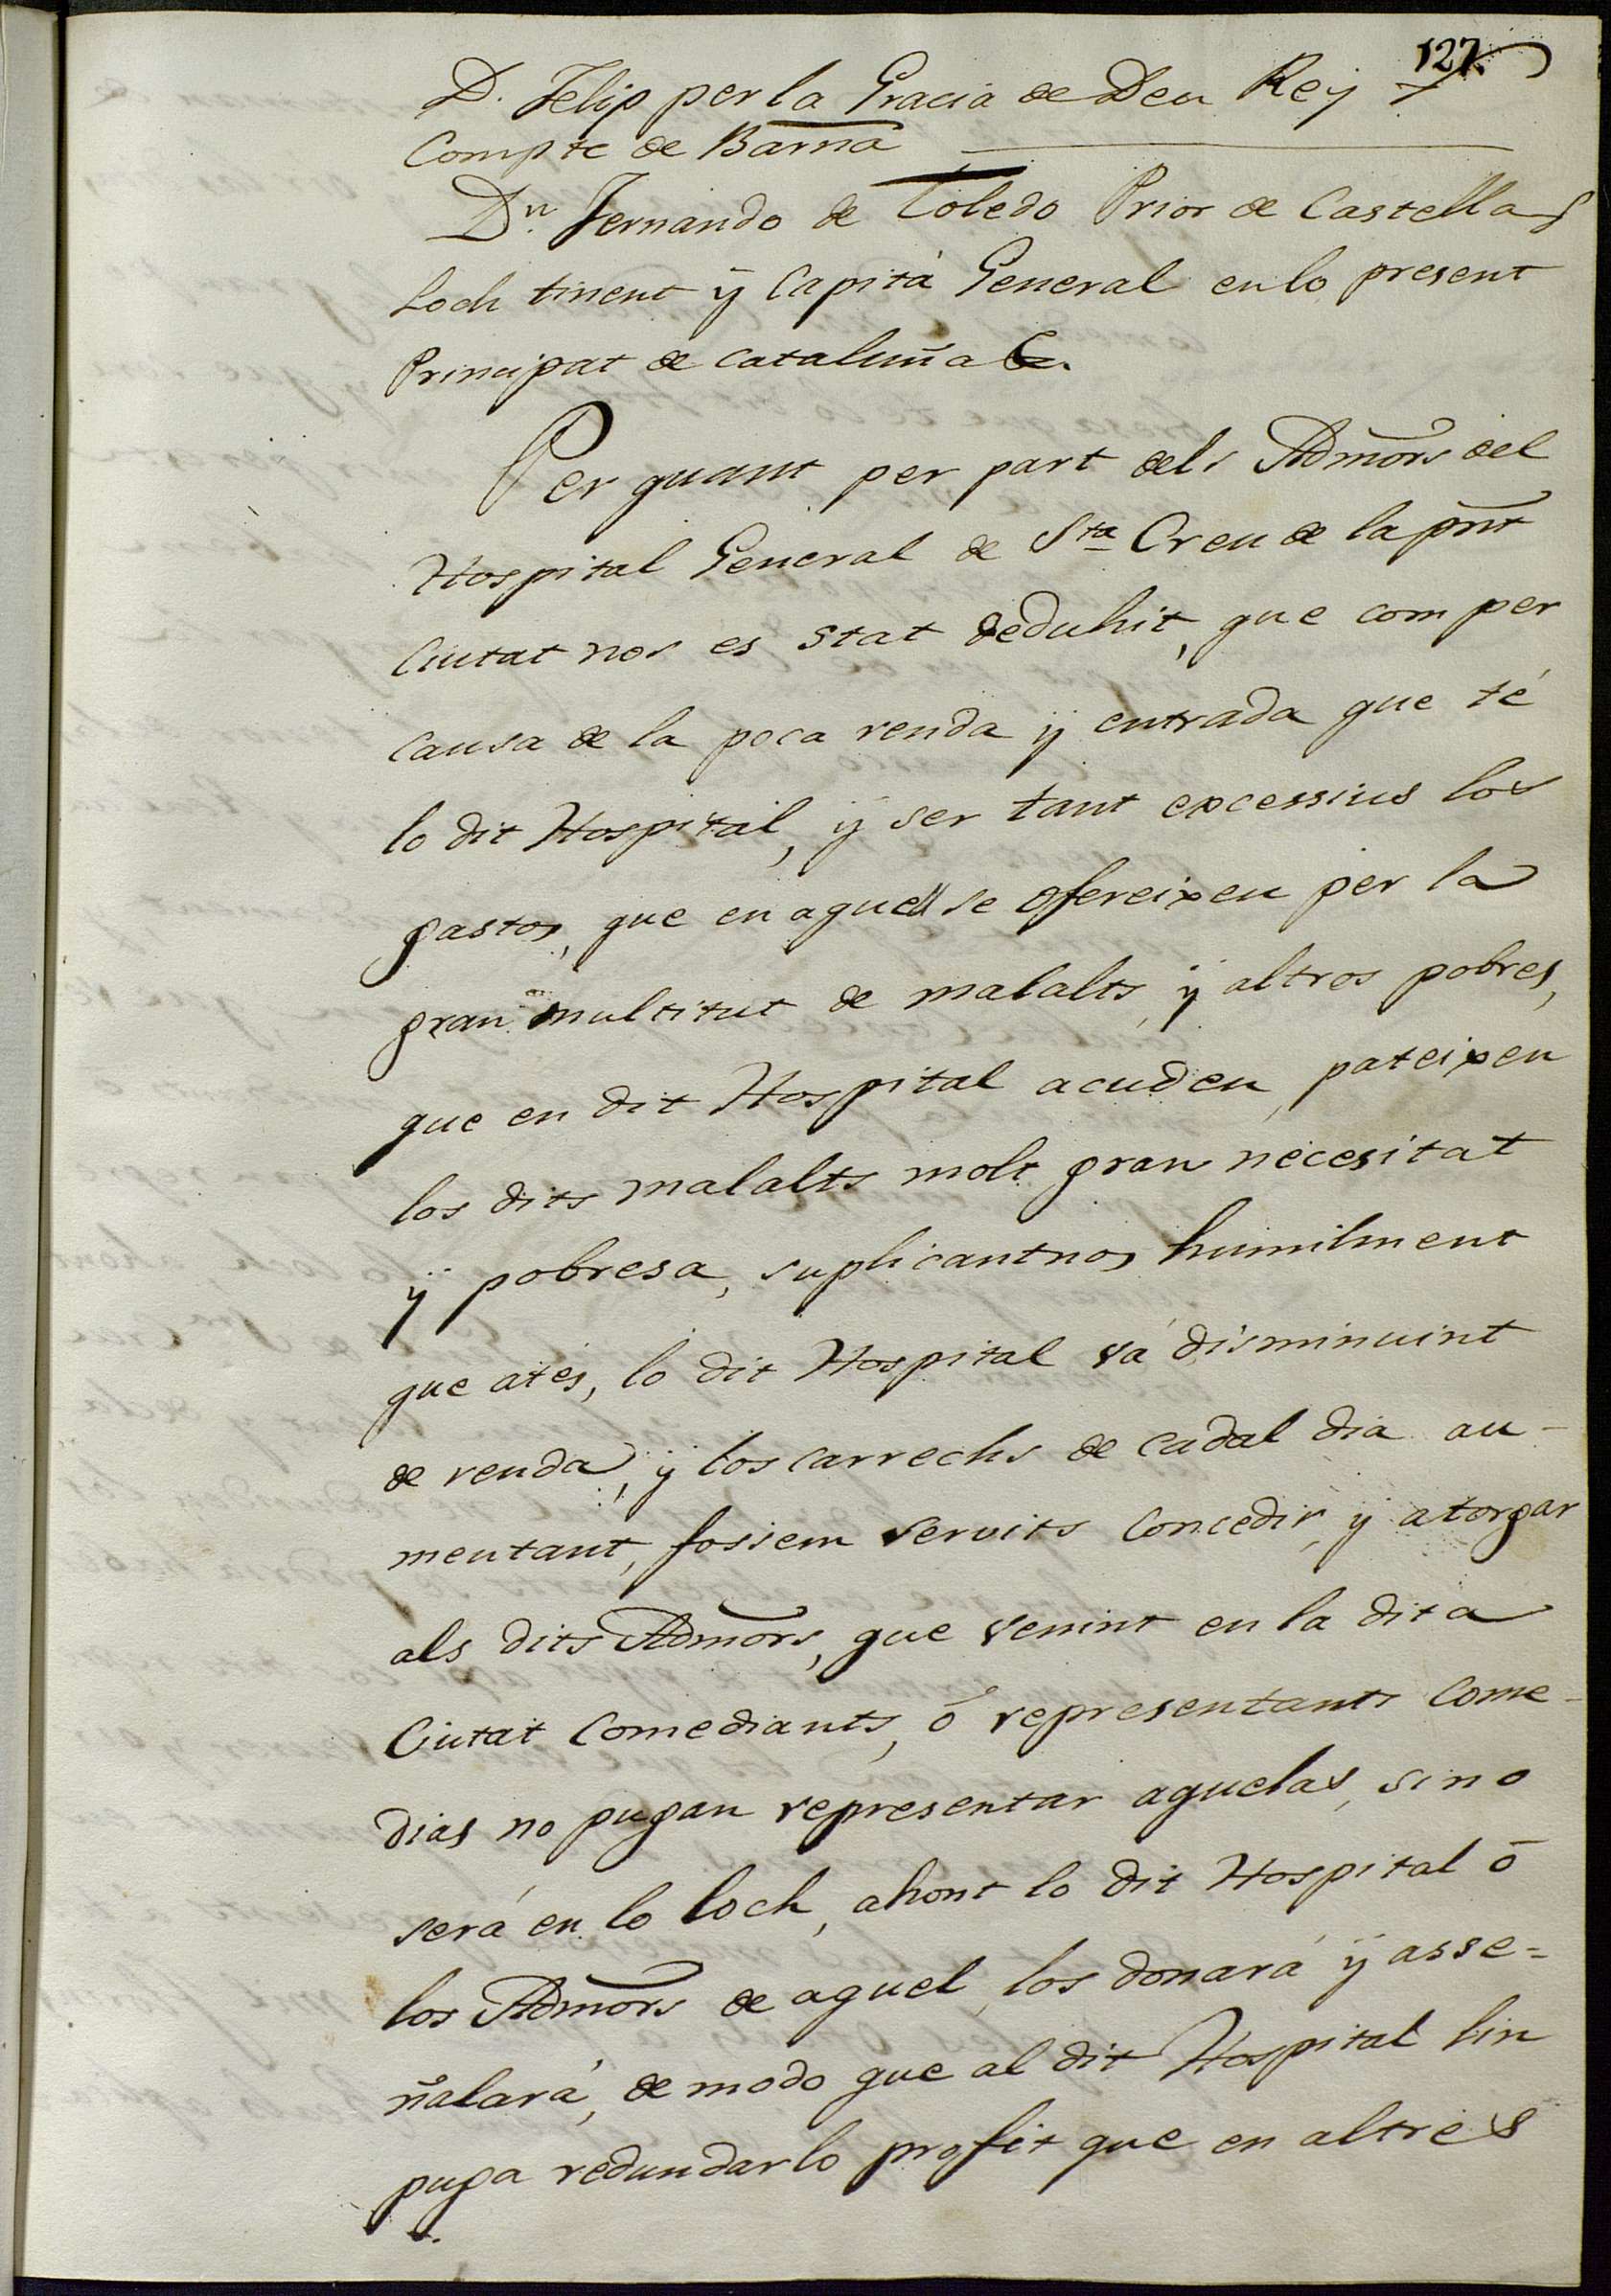 127.
D. Felip per la Gracia de Deu Rey
Compte de Barna
Dn. Fernando de Toledo Prior de Castella
Loch tinent ÿ Capitá General en lo present
Principat de Cataluña &.
Per quant per part dels Admors del
Hospital General de Sta Creu de la pnt
Ciutat nos es stat deduhit, que com per
causa de la poca renda ÿ entrada que té
lo dit Hospital, ÿ ser tant excessius los
gastos, que en aquell se ofereixen per la
gran multitut de malalts, ÿ altres pobres,
que en dit Hospital acuden, pateixen
los dits malalts molt gran necesitat
ÿ pobresa, suplicantnos humilment
que atés, lo dit Hospital vá disminuint
de renda, ÿ los carrechs de cadal dia au-
mentant, fossem servits Concedir, ÿ atorgar
als dits Admors, que venint en la dita
Ciutat Comediants, ó representants Come-
dias no pugan representar aquelas, sino
será en lo loch, ahont lo dit Hospital ó
los Admors de aquel, los donará ÿ asse=
ñalará, de modo que al dit Hospital lin
puga redundar lo profit que en altres